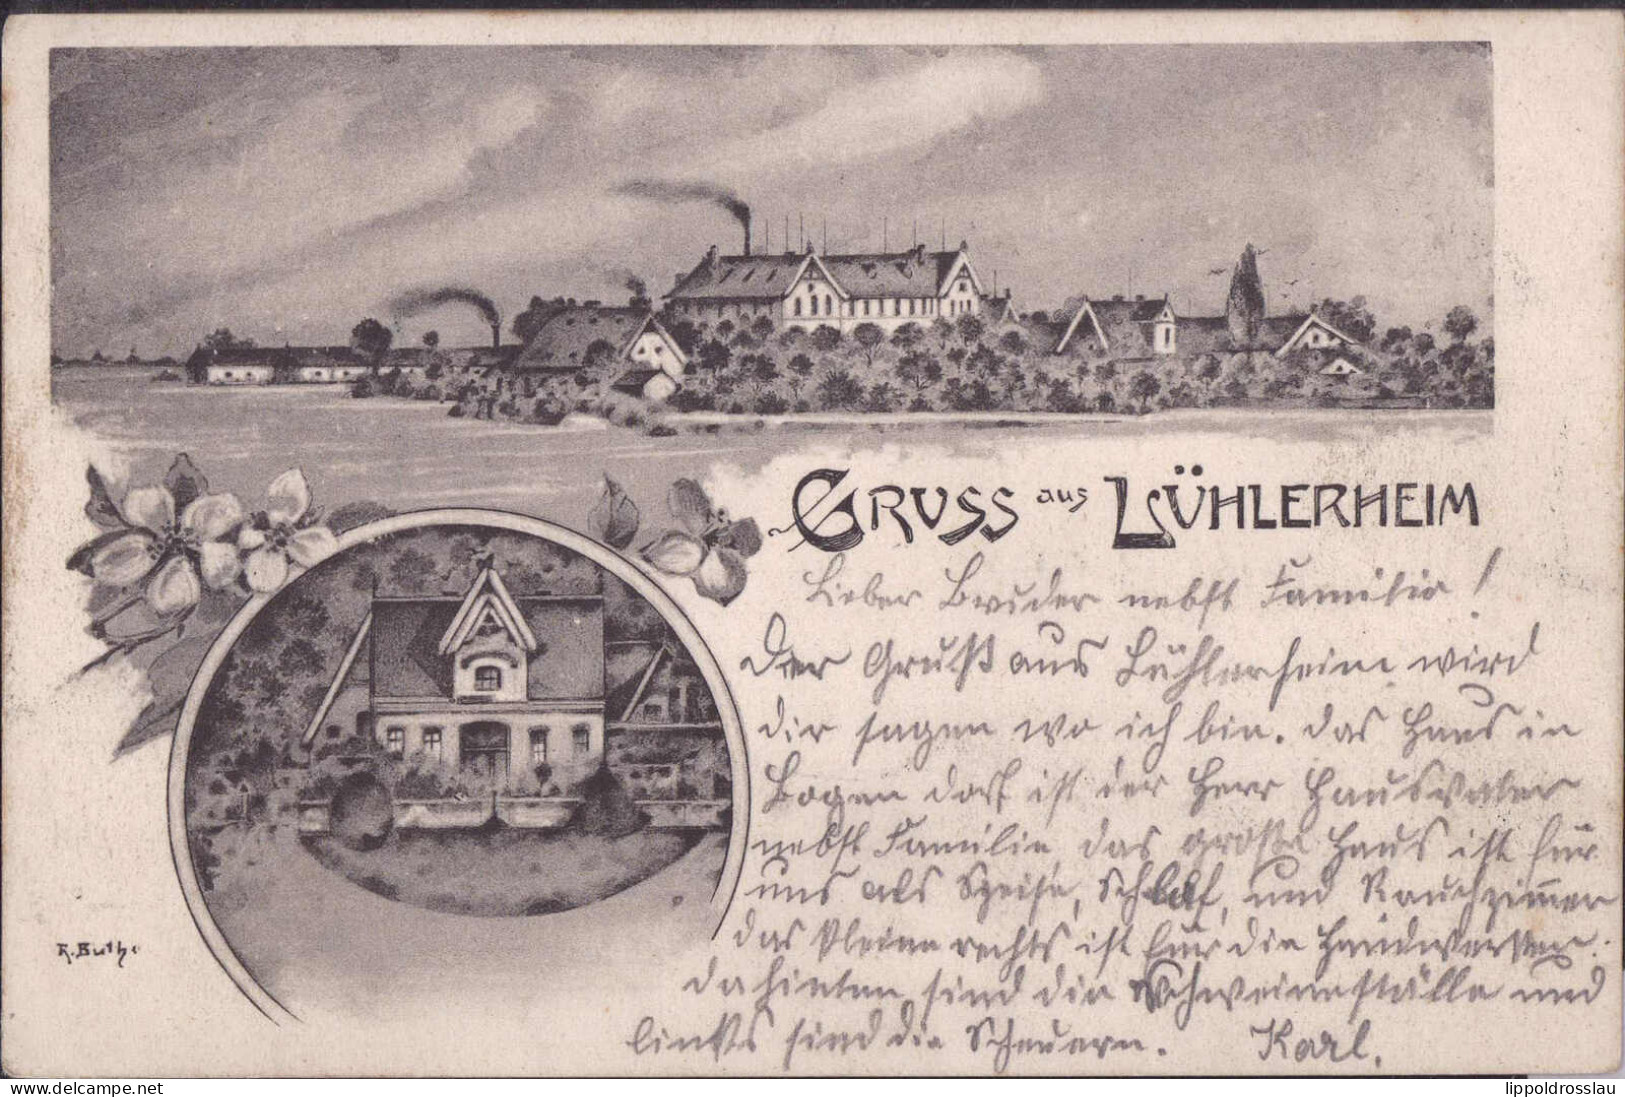 GRUSS aus LÜHLERHEIM
Lieber Bruder nebst Familie!
Der Gruß aus Lühlerheim wird
dir sagen wo ich bin. das Haus in
Bogen dort ist der Herr Hausvater
nebst Familie, das große Haus ist für
uns als Speise, Schlaf, und Rauchzimmer
das kleine rechts ist für die Handwerker.
dahinten sind die Schweineställe und
links sind die Scheuern. Karl.
R. Buthe
lippoldrosslau